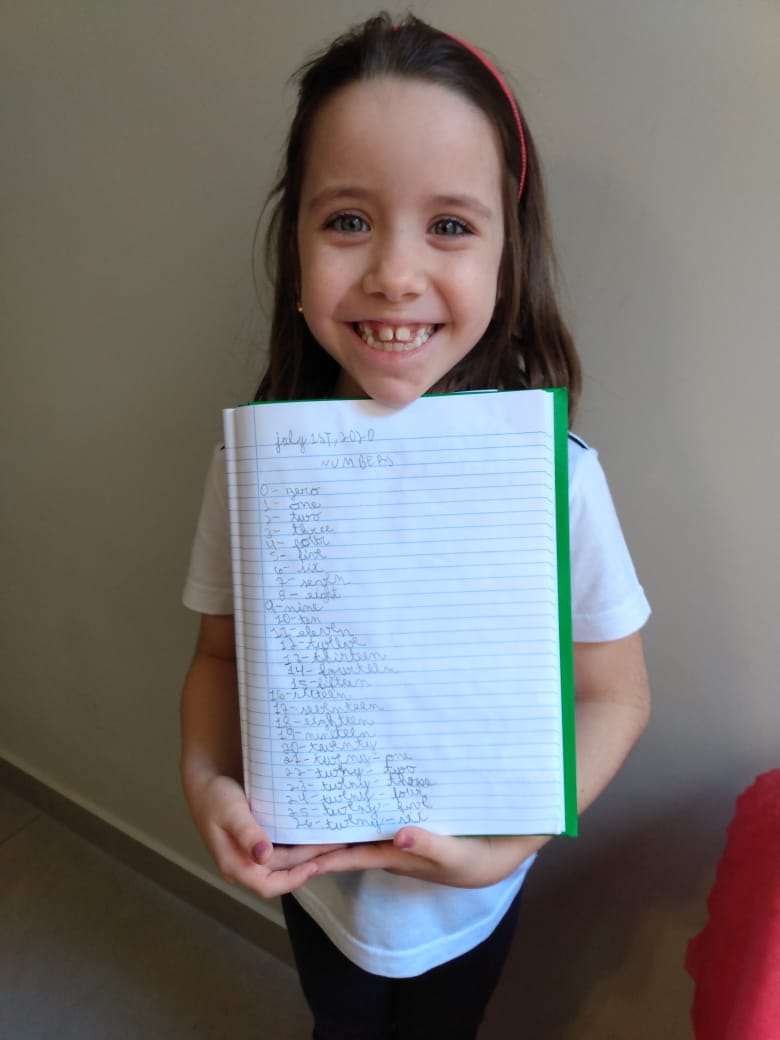 july 1ST, 2020
NUMBERS
0 - zero
1 - one
2 - two
3 - three
4 - four
5 - five
6 - six
7 - seven
8 - eight
9 - nine
10 - ten
11 - eleven
12 - twelve
13 - thirteen
14 - fourteen
15 - fifteen
16 - sixteen
17 - seventeen
18 - eighteen
19 - nineteen
20 - twenty
21 - - one
22 - - two
23 - - three
24 - - four
25 - - five
26 - - six